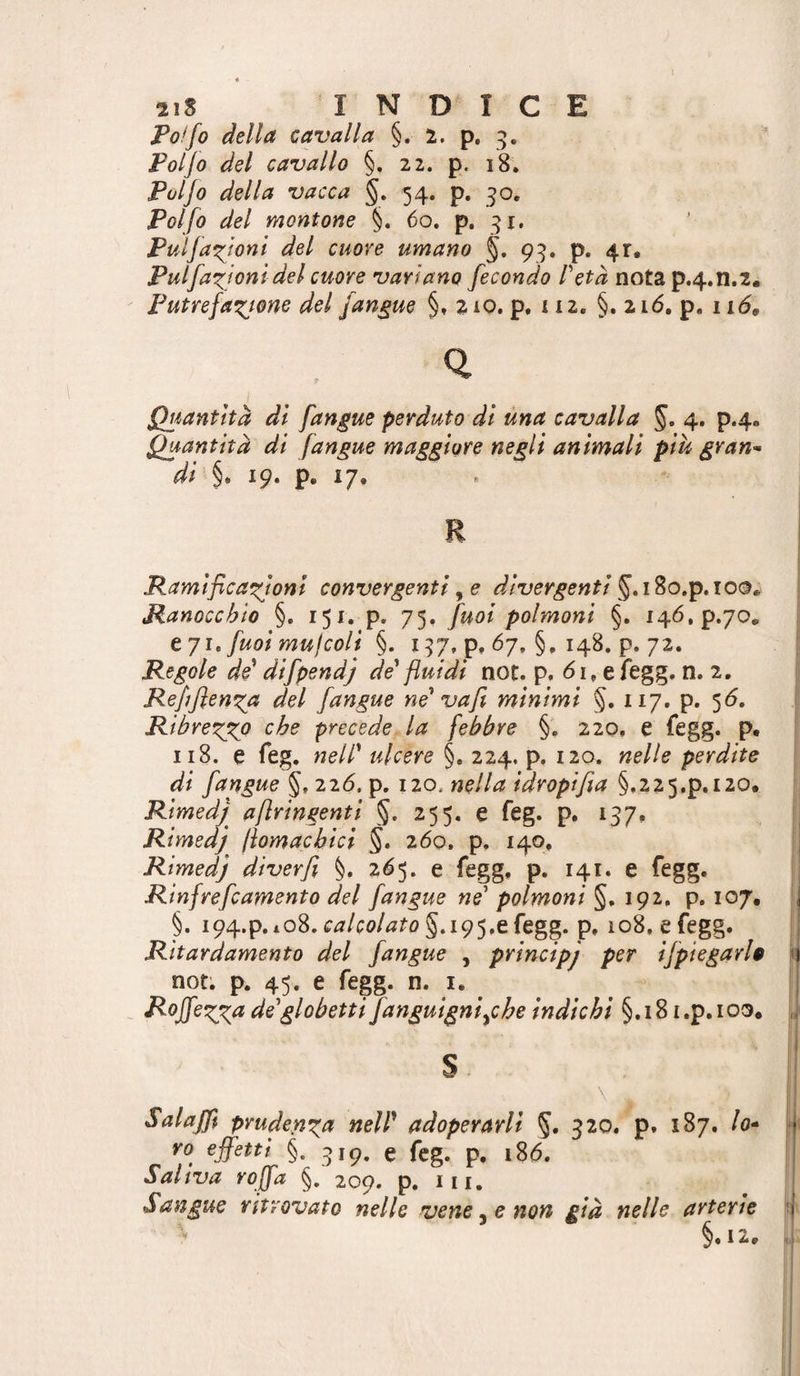 218 INDICE
Polſo della cavalla §. 2. p. 3.
Polſo del cavallo §. 22. p. 18.
Polſo della vacca §. 54. p. 30.
Polſo del montone §. 60. p. 31.
Pulſazioni del cuore umano §. 93. p. 41.
Pulſazioni del cuore variano ſecondo l'età nota p.4.n.2.
Putrefazione del ſangue §. 210. p. 112. §. 216. p. 116.
Q
Quantità di ſangue perduto di una cavalla §. 4. p.4.
Quantità di ſangue maggiore negli animali più gran-
di §. 19. p. 17.
R
Ramificazioni convergenti, e divergenti §.180.p.100.
Ranocchio §. 151. p. 75. ſuoi polmoni §. 146. p.70.
e 71. ſuoi muſcoli §. 137. p. 67. §. 148. p. 72.
Regole de' diſpendj de' fluidi not. p. 61. e ſegg. n. 2.
Reſiſtenza del ſangue ne' vaſi minimi §. 117. p. 56.
Ribrezzo che precede la febbre §. 220. e ſegg. p.
118. e ſeg. nell' ulcere §. 224. p. 120. nelle perdite
di ſangue §. 226. p. 120. nella idropiſia §.225.p.120.
Rimedj aſtringenti §. 255. e ſeg. p. 137.
Rimedj ſtomachici §. 260. p. 140.
Rimedj diverſi §. 265. e ſegg. p. 141. e ſegg.
Rinfreſcamento del ſangue ne' polmoni §. 192. p. 107.
§. 194.p.108. calcolato §.195.e ſegg. p. 108. e ſegg.
Ritardamento del ſangue , principj per iſpiegarlo
not. p. 45. e ſegg. n. 1.
Roſſezza de'globetti ſanguigni,che indichi §.181.p.100.
S
Salaſſi prudenza nell' adoperarli §. 320. p. 187. lo-
ro effetti §. 319. e ſeg. p. 186.
Saliva roſſa §. 209. p. 111.
Sangue ritrovato nelle vene, e non già nelle arterie
§.12.